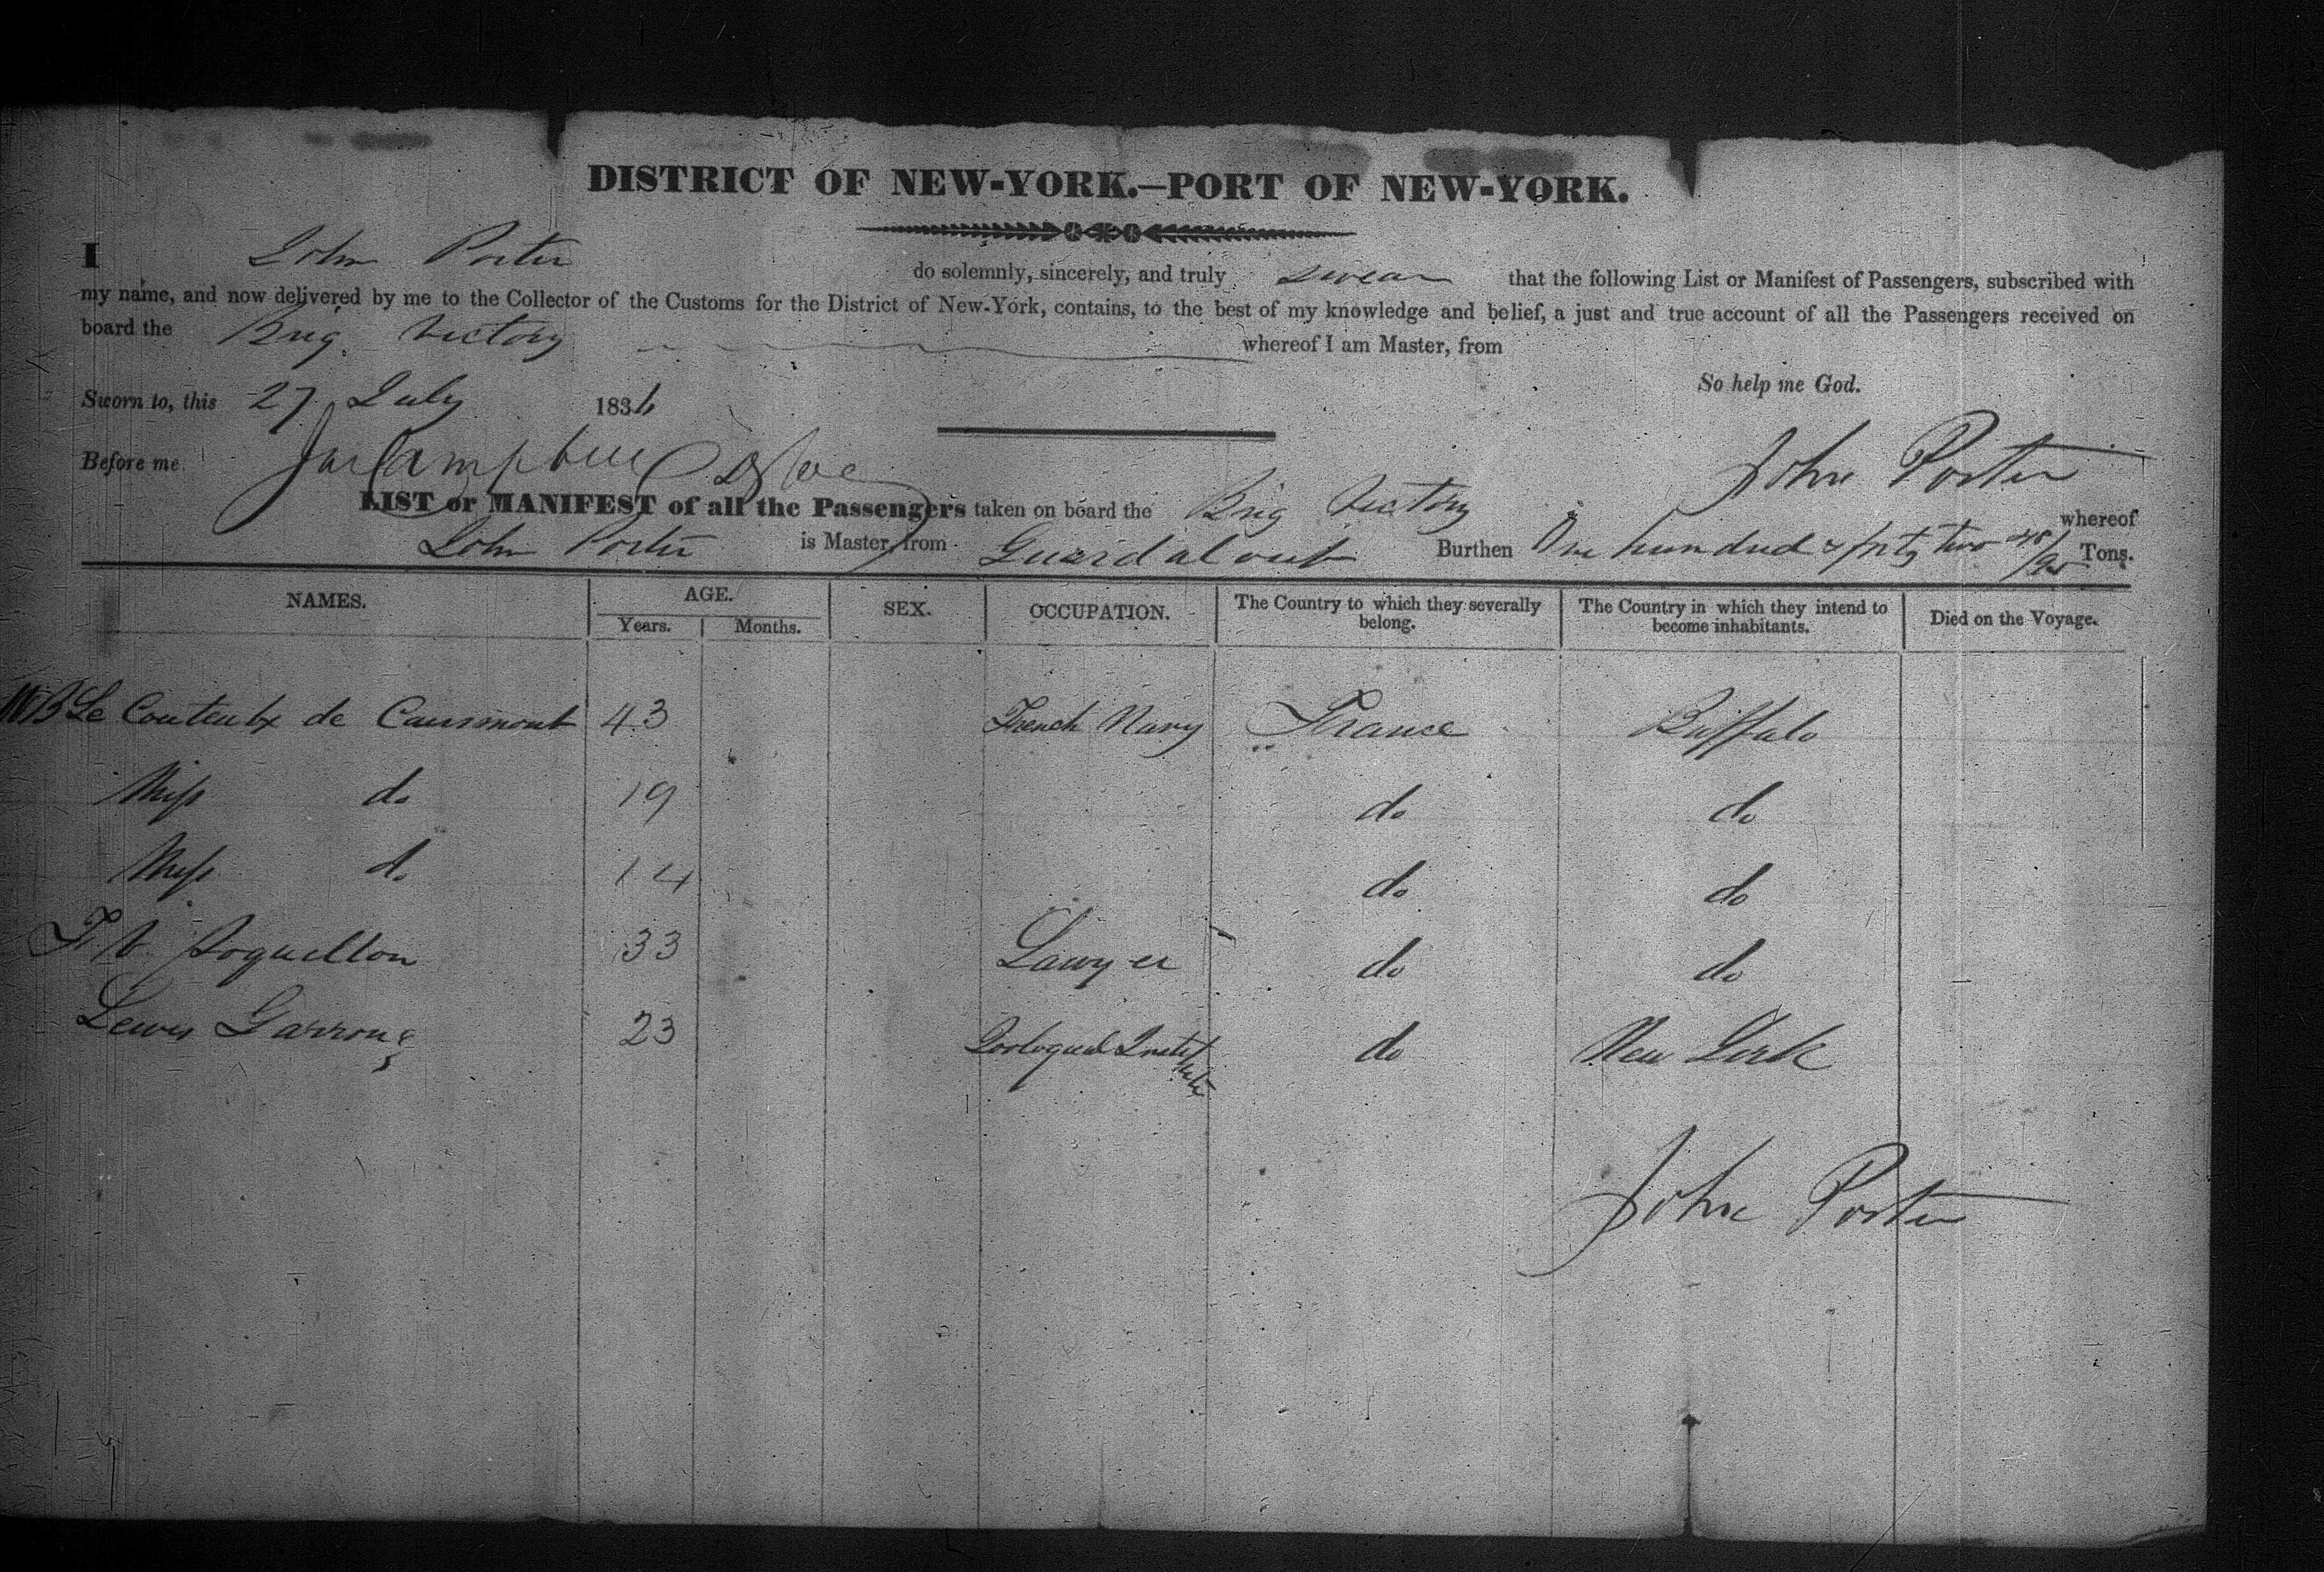 DISTRICT OF NEW-YORK.—PORT OF NEW-YORK.
I John Porter do solemnly, sincerely, and truly swear that the following List or Manifest of Passengers, subscribed with
my name, and now delivered by me to the Collector of the Customs for the District of New-York, contains, to the best of my knowledge and belief, a just and true account of all the Passengers received on
board the Brig Victory whereof I am Master, from
So help me God.
Sworn to, this 27 July 1836
John Porter
Before me Campbell
LIST or MANIFEST of all the Passengers taken on board the Brig Victory whereof
John Porter is Master, from Guardaloup Burthen One hundred & forty two Tons.
NAMES. AGE. Years. Months. SEX. OCCUPATION. The Country to which they severally belong. The Country in which they intend to become inhabitants. Died on the Voyage.
Le Couteulx de Caumont 43 French Navy France Buffalo
Miss do 19 do do
Miss do 14 do do
33 Lawyer do do
Lewis 23 Zoological Institute do New York
John Porter